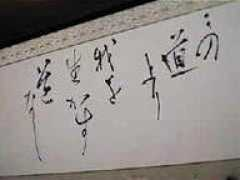 この
道
より
我を
生かす
道なし